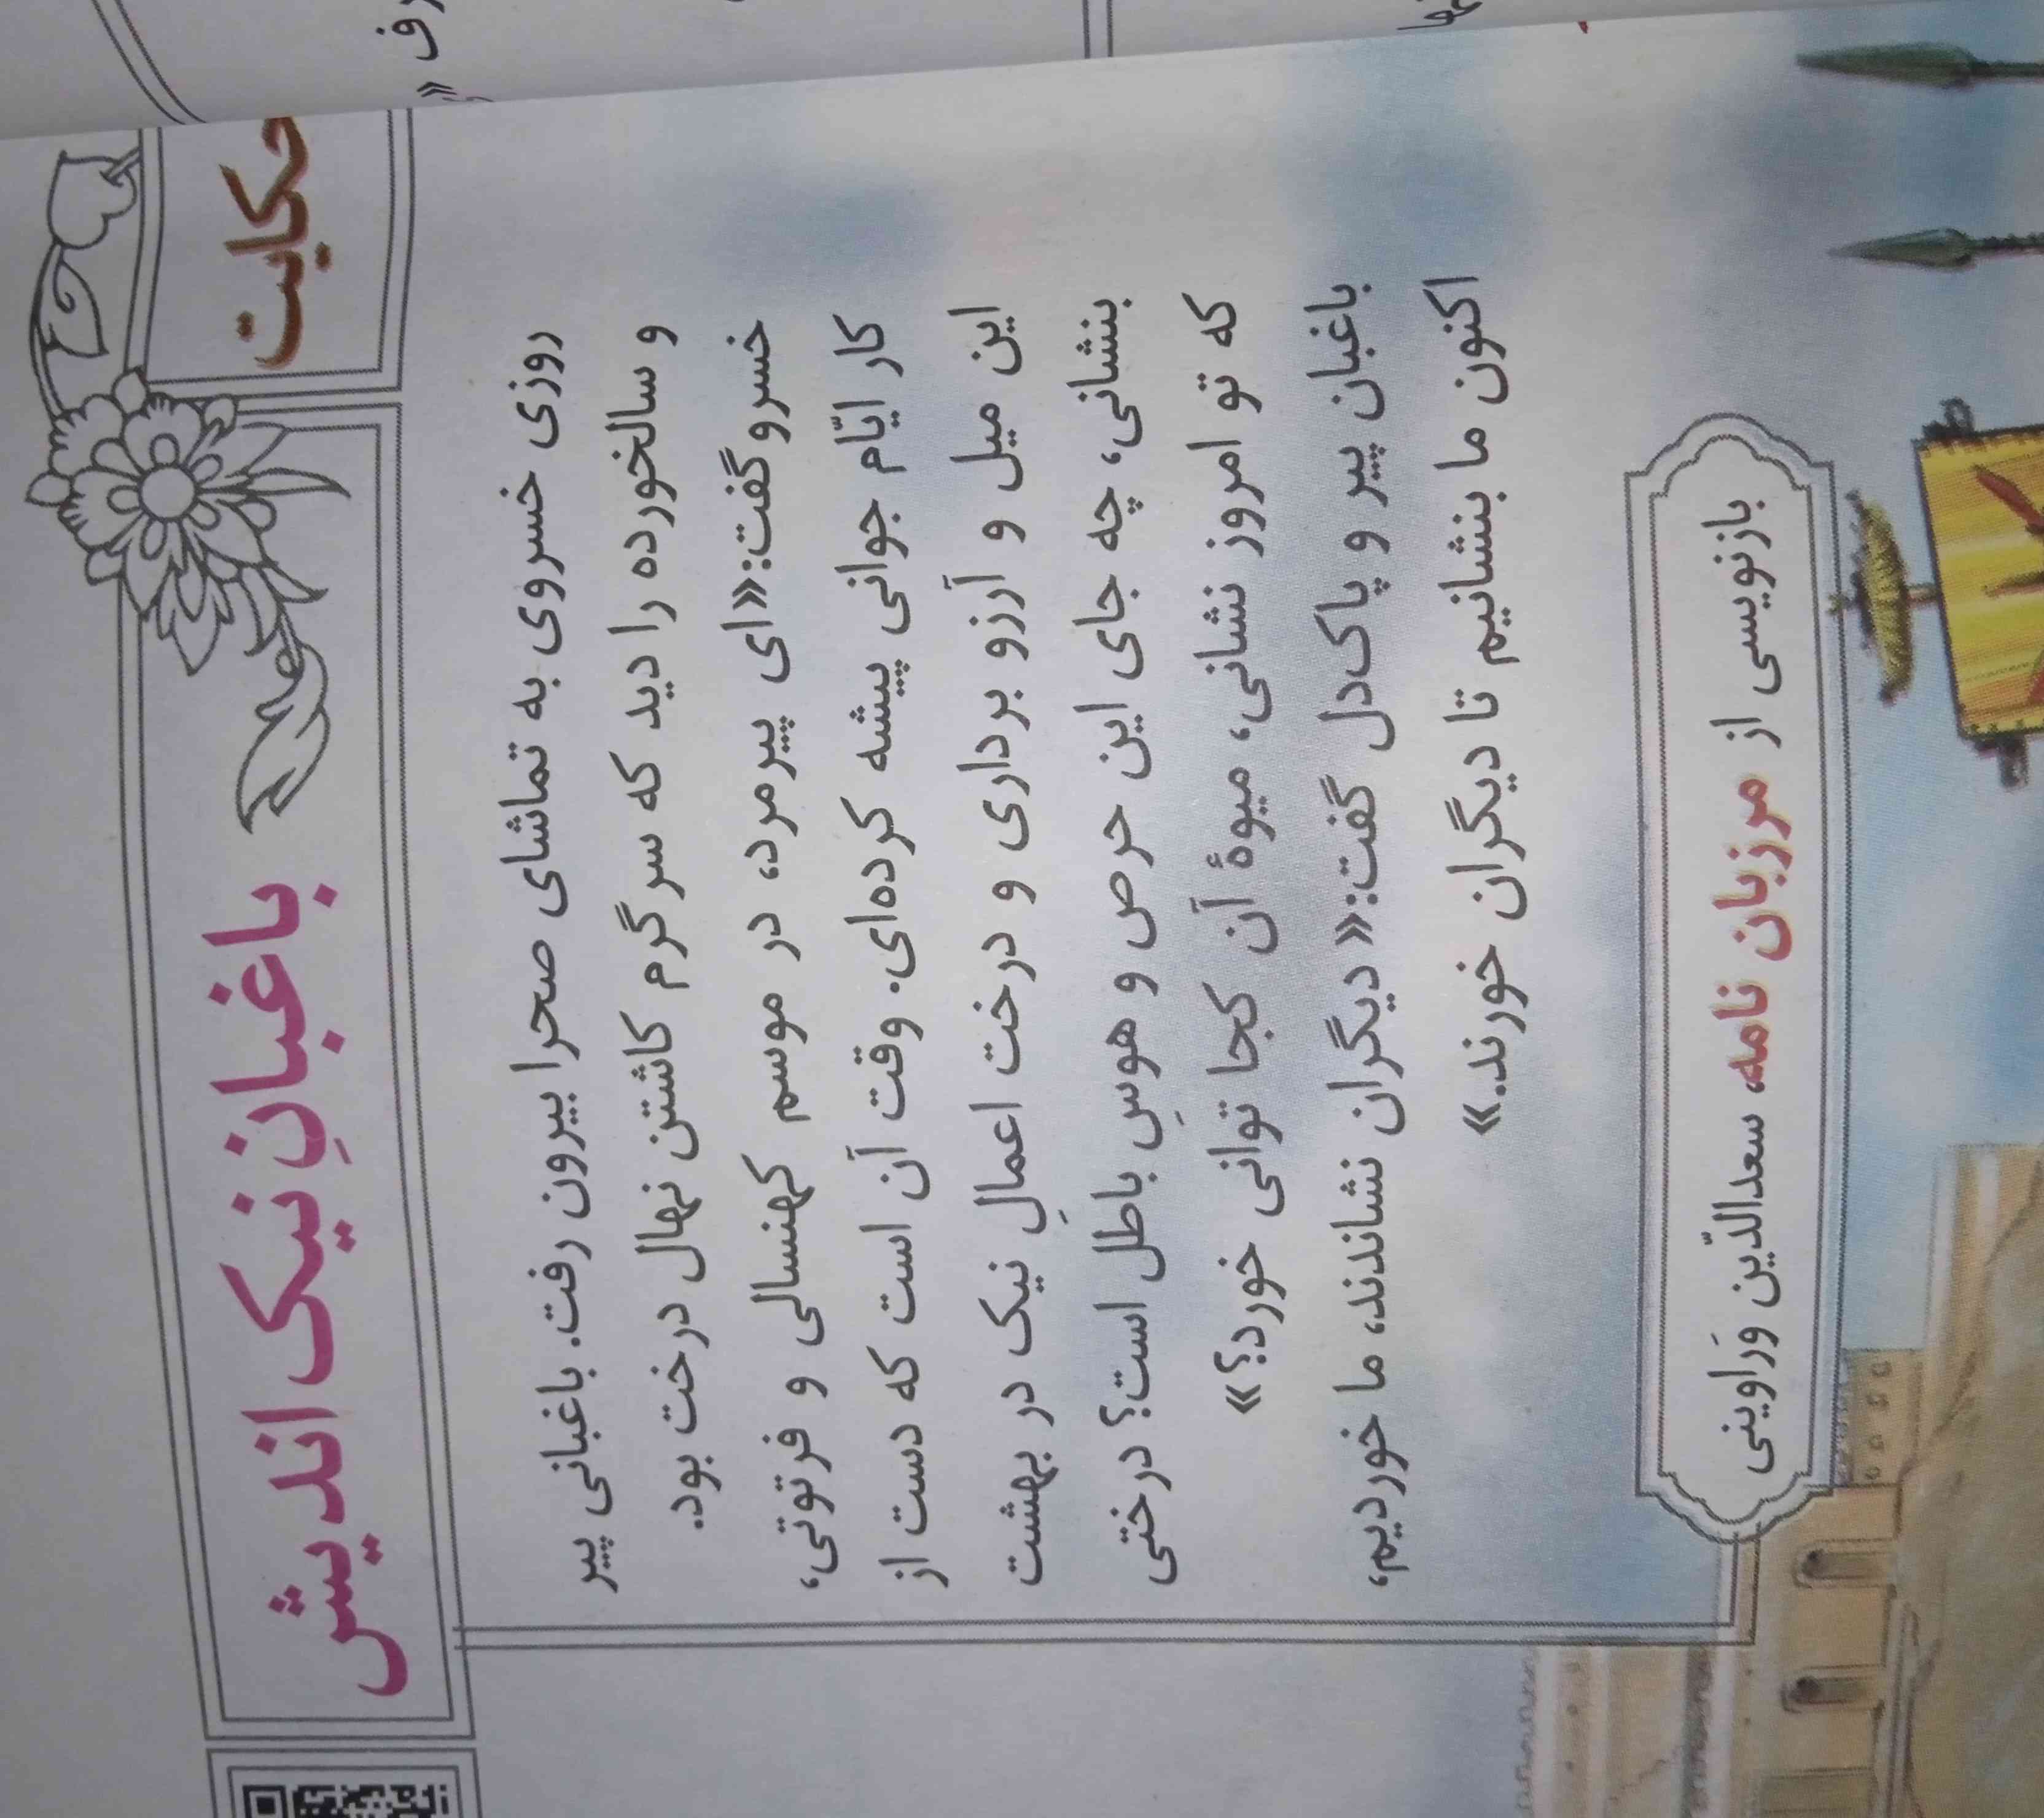 حکایت
باغبانِ نیک‌اندیش
روزی خسروی به تماشای صحرا بیرون رفت. باغبانی پیر
و سالخورده را دید که سرگرم کاشتن نهال درخت بود.
خسرو گفت: «ای پیرمرد، در موسم کهنسالی و فرتوتی،
کار ایّام جوانی پیشه کرده‌ای. وقت آن است که دست از
این میل و آرزو برداری و درخت اعمالِ نیک در بهشت
بنشانی، چه جای این حرص و هوسِ باطل است؟ درختی
که تو امروز نشانی، میوهٔ آن کجا توانی خورد؟»
باغبان پیر و پاک‌دل گفت: «دیگران نشاندند، ما خوردیم،
اکنون ما بنشانیم تا دیگران خورند.»
بازنویسی از مرزبان نامه، سعدالدّین وَراوینی